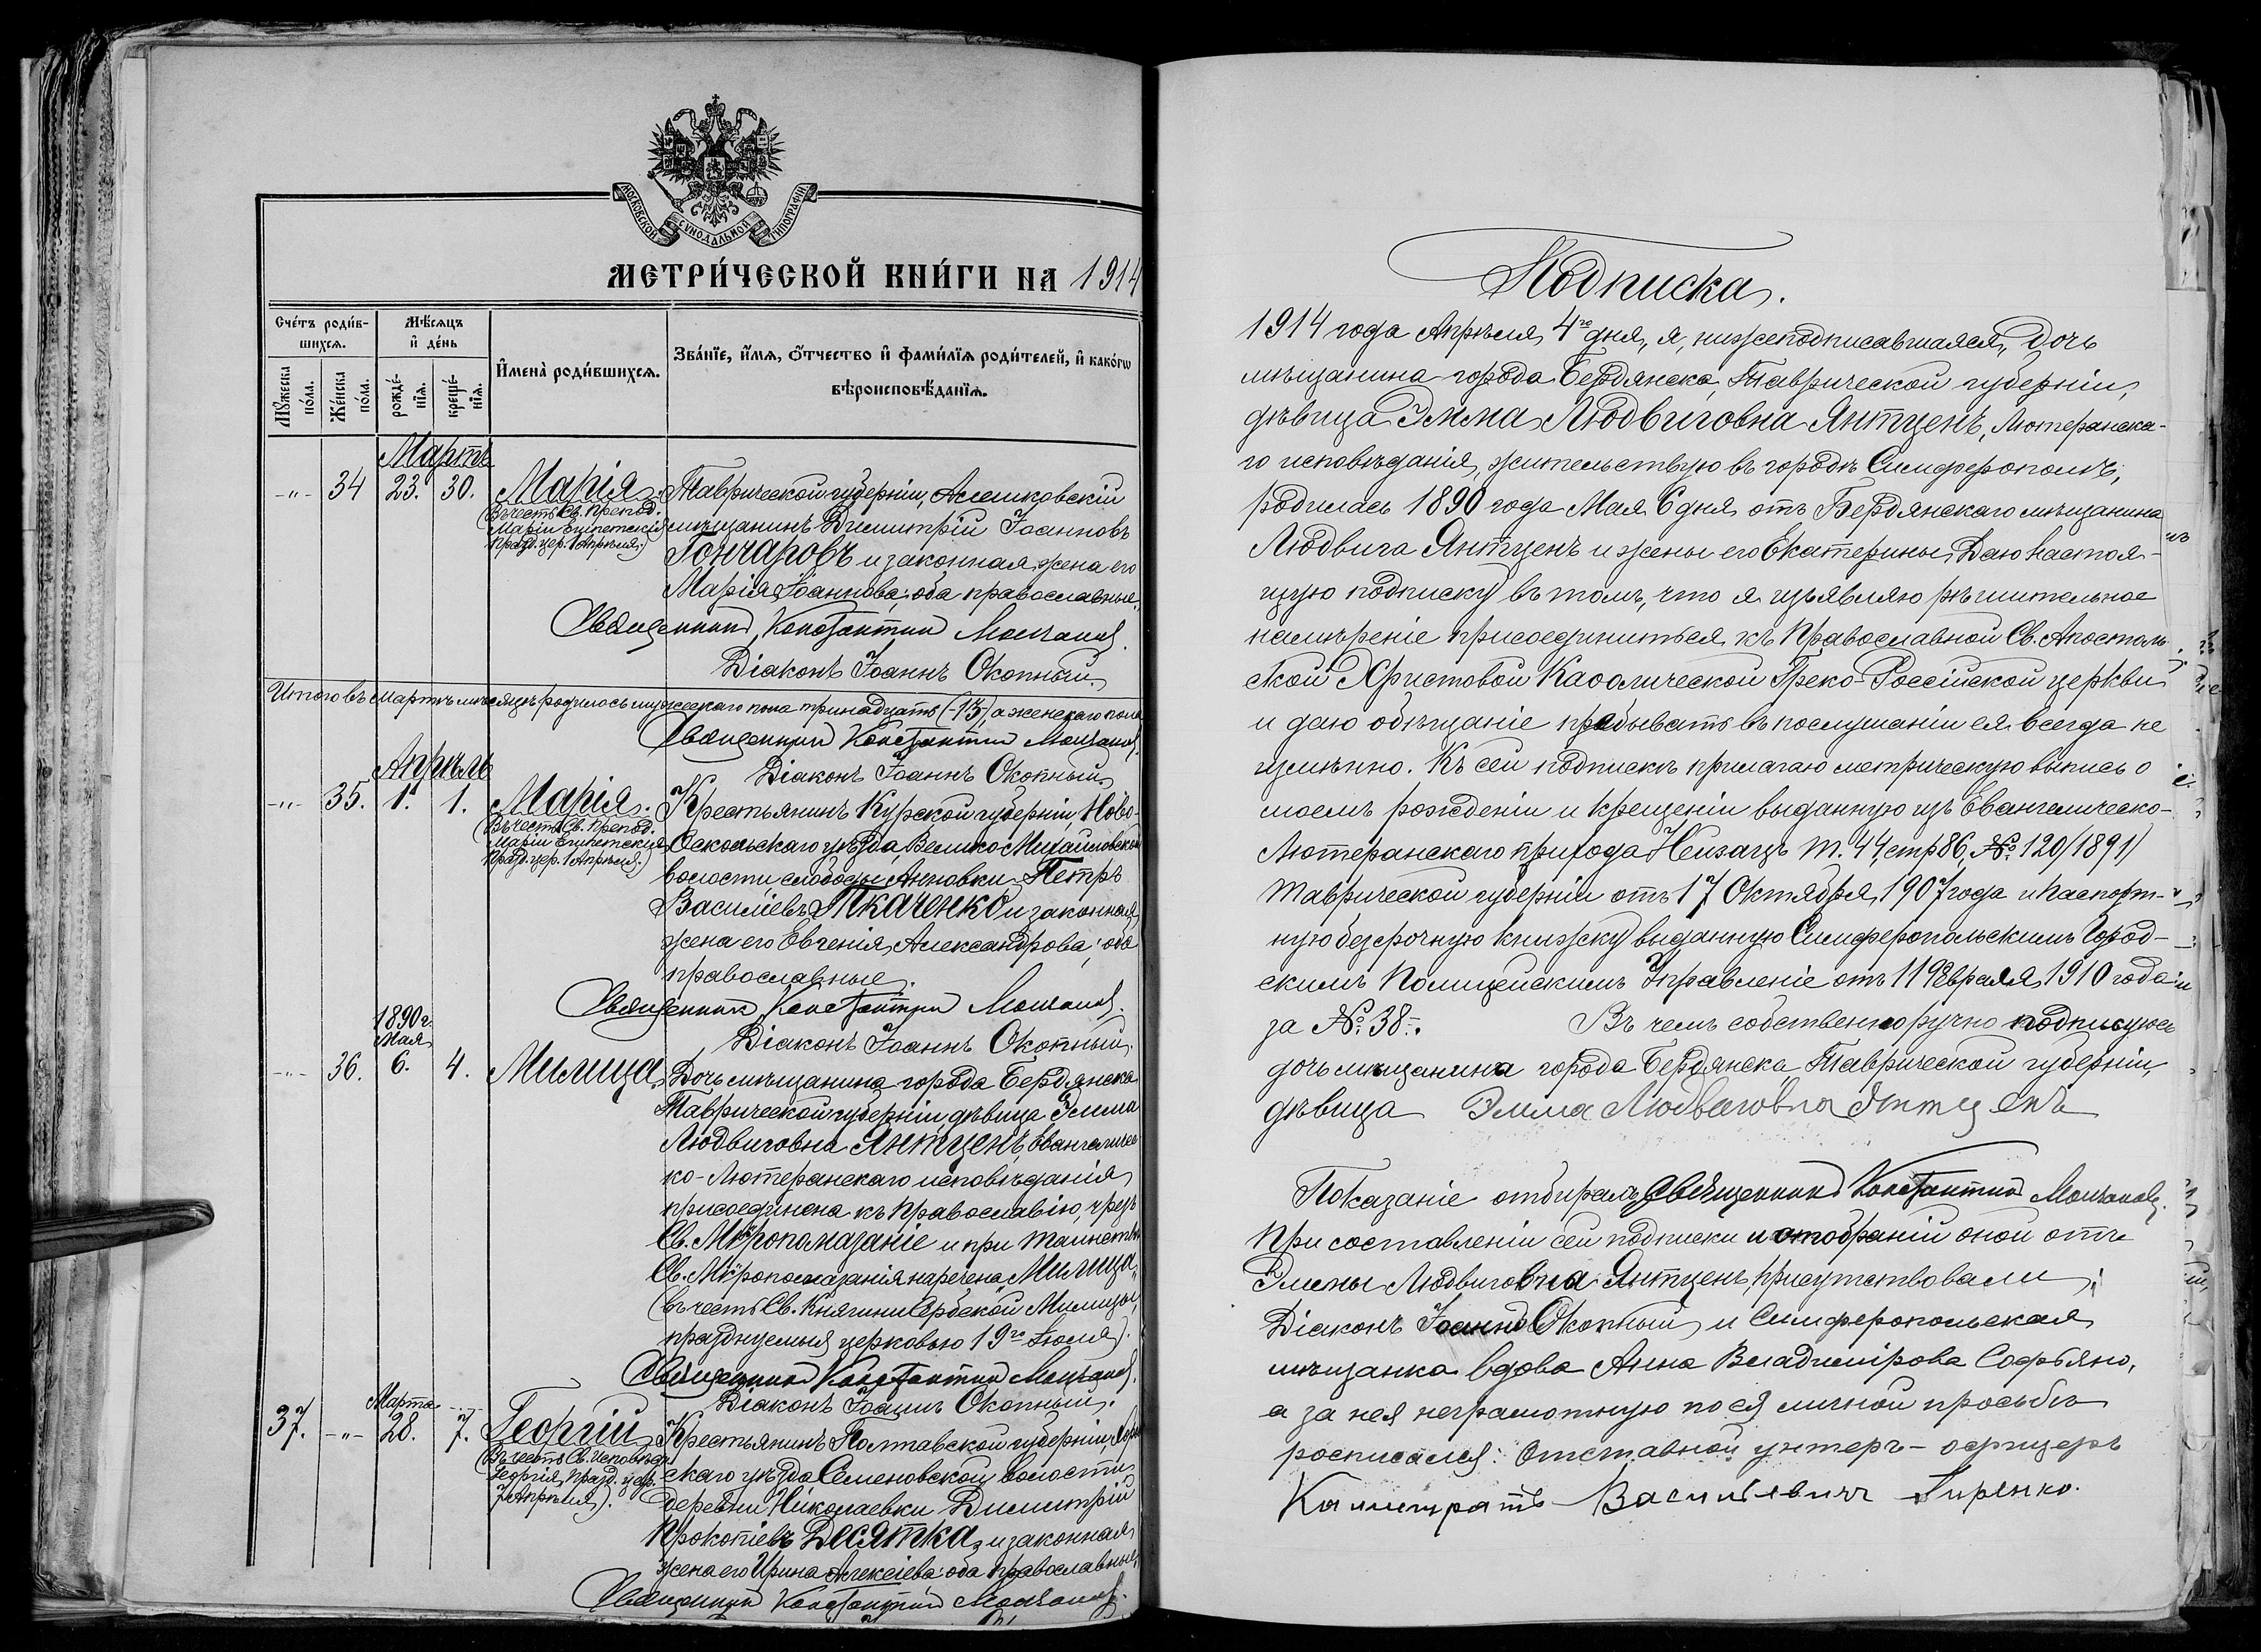 МОСКОВСКОЙ СѴНОДАЛЬНОЙ ТИПОГРАФІИ
МЕТРИ́ЧЕСКОЙ КНИ́ГИ НА 1914
Сче́тъ роди́в-
шихсѧ.
Мѣ́сѧцъ
и҆ де́нь
Мꙋ́жеска по́ла.
Же́нска по́ла.
рожде́-
нїѧ.
креще́-
нїѧ.
И҆мена̀ роди́вшихсѧ.
Зва́нїе, и҆́мѧ, ѻ҆́тчество и҆ фами́лїѧ роди́телей, и҆ како́гѡ
вѣроисповѣ́данїѧ.
Мартъ
-"- 34 23. 30. Марія. Таврической губерніи, Алешковскій
(Въ честь Св. Препод.
Маріи Египетскія мѣщанинъ Димитрій Іоанновъ
празд. цер. 1 Апрѣля.)
Гончаровъ и законная жена его
Марія Іоаннова; оба православные.
Священникъ Константинъ Молчановъ.
Діаконъ Іоаннъ Окопный.
Итого въ мартѣ мѣсяцѣ родилось мужескаго пола тринадцать (13) а женскаго пола
Священникъ Константинъ Молчановъ.
Апрѣль
Діаконъ Іоаннъ Окопный.
-"- 35. 1. 1. Марія. Крестьянинъ Курской губерніи, Ново-
(Въ честь Св. Препод.
Маріи Египетскія Оскольскаго уѣзда, Велико Михайловской
празд. цер. 1 Апрѣля.)
волости, слободы Анновки Петръ
Василіевъ Ткаченко и законная
жена его Евгенія Александрова; оба
православные.
Священникъ Константинъ Молчановъ.
1890 г.
Мая
Діаконъ Іоаннъ Окопный.
-"- 36. 6. 4. Милица. Дочь мѣщанина города Бердянска
Таврической губерніи, дѣвица Эмма
Людвиговна Янтценъ, Евангеличес
ко-Лютеранскаго исповѣданія
присоединена къ Православію, чрезъ
Св. Мѵропомазаніе и при таинствѣ
Св. Мѵропомазанія наречена „Милица"
(въ честь Св. Княгини Сербской Милицы,
празднуемыя церковью 19го Іюля).
Священникъ Константинъ Молчановъ.
Марта
Діаконъ Іоаннъ Окопный.
37. -"- 28. 7. Георгій Крестьянинъ Полтавской губерніи, Хоро
(Въ честь Св. Исповѣд.
Георгія, празд. цер. скаго уѣзда Семеновской волости
7 Апрѣля).
деревни Николаевки Димитрій
Прокопіевъ Десятка и законная
жена его Ирина Алексіева; оба православные.
Священникъ Константинъ Молчановъ.
Подписка.
1914 года Апрѣля 4го дня, я, нижеподписавшаяся, дочь
мѣщанина города Бердянска, Таврической губерніи,
дѣвица Эмма Людвиговна Янтценъ, Лютеранска-
го исповѣданія, жительствую въ городѣ Симферополѣ,
родилась 1890 года Мая 6 дня отъ Бердянскаго мѣщанина
Людвига Янтценъ и жены его Екатерины, даю настоя-
щую подписку въ томъ, что я изъявляю рѣшительное
намѣреніе присоединиться къ Православной Св. Апостоль
ской Христовой Каѳолической Греко-Россійской церкви
и даю обѣщаніе пребывать въ послушаніи ея всегда не
измѣнно. Къ сей подпискѣ прилагаю метрическую выпись о
моемъ рожденіи и крещеніи выданную изъ Евангелическо-
Лютеранскаго прихода Нейзацъ т. 44, стр 86, №: 120/1891/
Таврической губерніи отъ 17 Октября 1907 года и паспорт-
ную безсрочную книжку выданную Симферопольскимъ Город-
скимъ Полицейскимъ Управленіе отъ 11 Февраля 1910 года
за №: 38. Въ чемъ собственноручно подписуюсь
дочь мѣщанина города Бердянска Таврической губерніи,
дѣвица Эмма Людвиговна Янтценъ
Показаніе отбиралъ Священникъ Константинъ Молчановъ.
При составленіи сей подписки и отобраніи оной отъ
Эммы Людвиговна Янтценъ, присутствовали:
Діаконъ Іоаннъ Окопный и Симферопольская
мѣщанка вдова Анна Владимірова Софьяно,
а за нея неграмотную по ея личной просьбѣ
росписался: Отставной унтеръ-офицеръ
Каллистратъ Васильевичъ Гиренко.